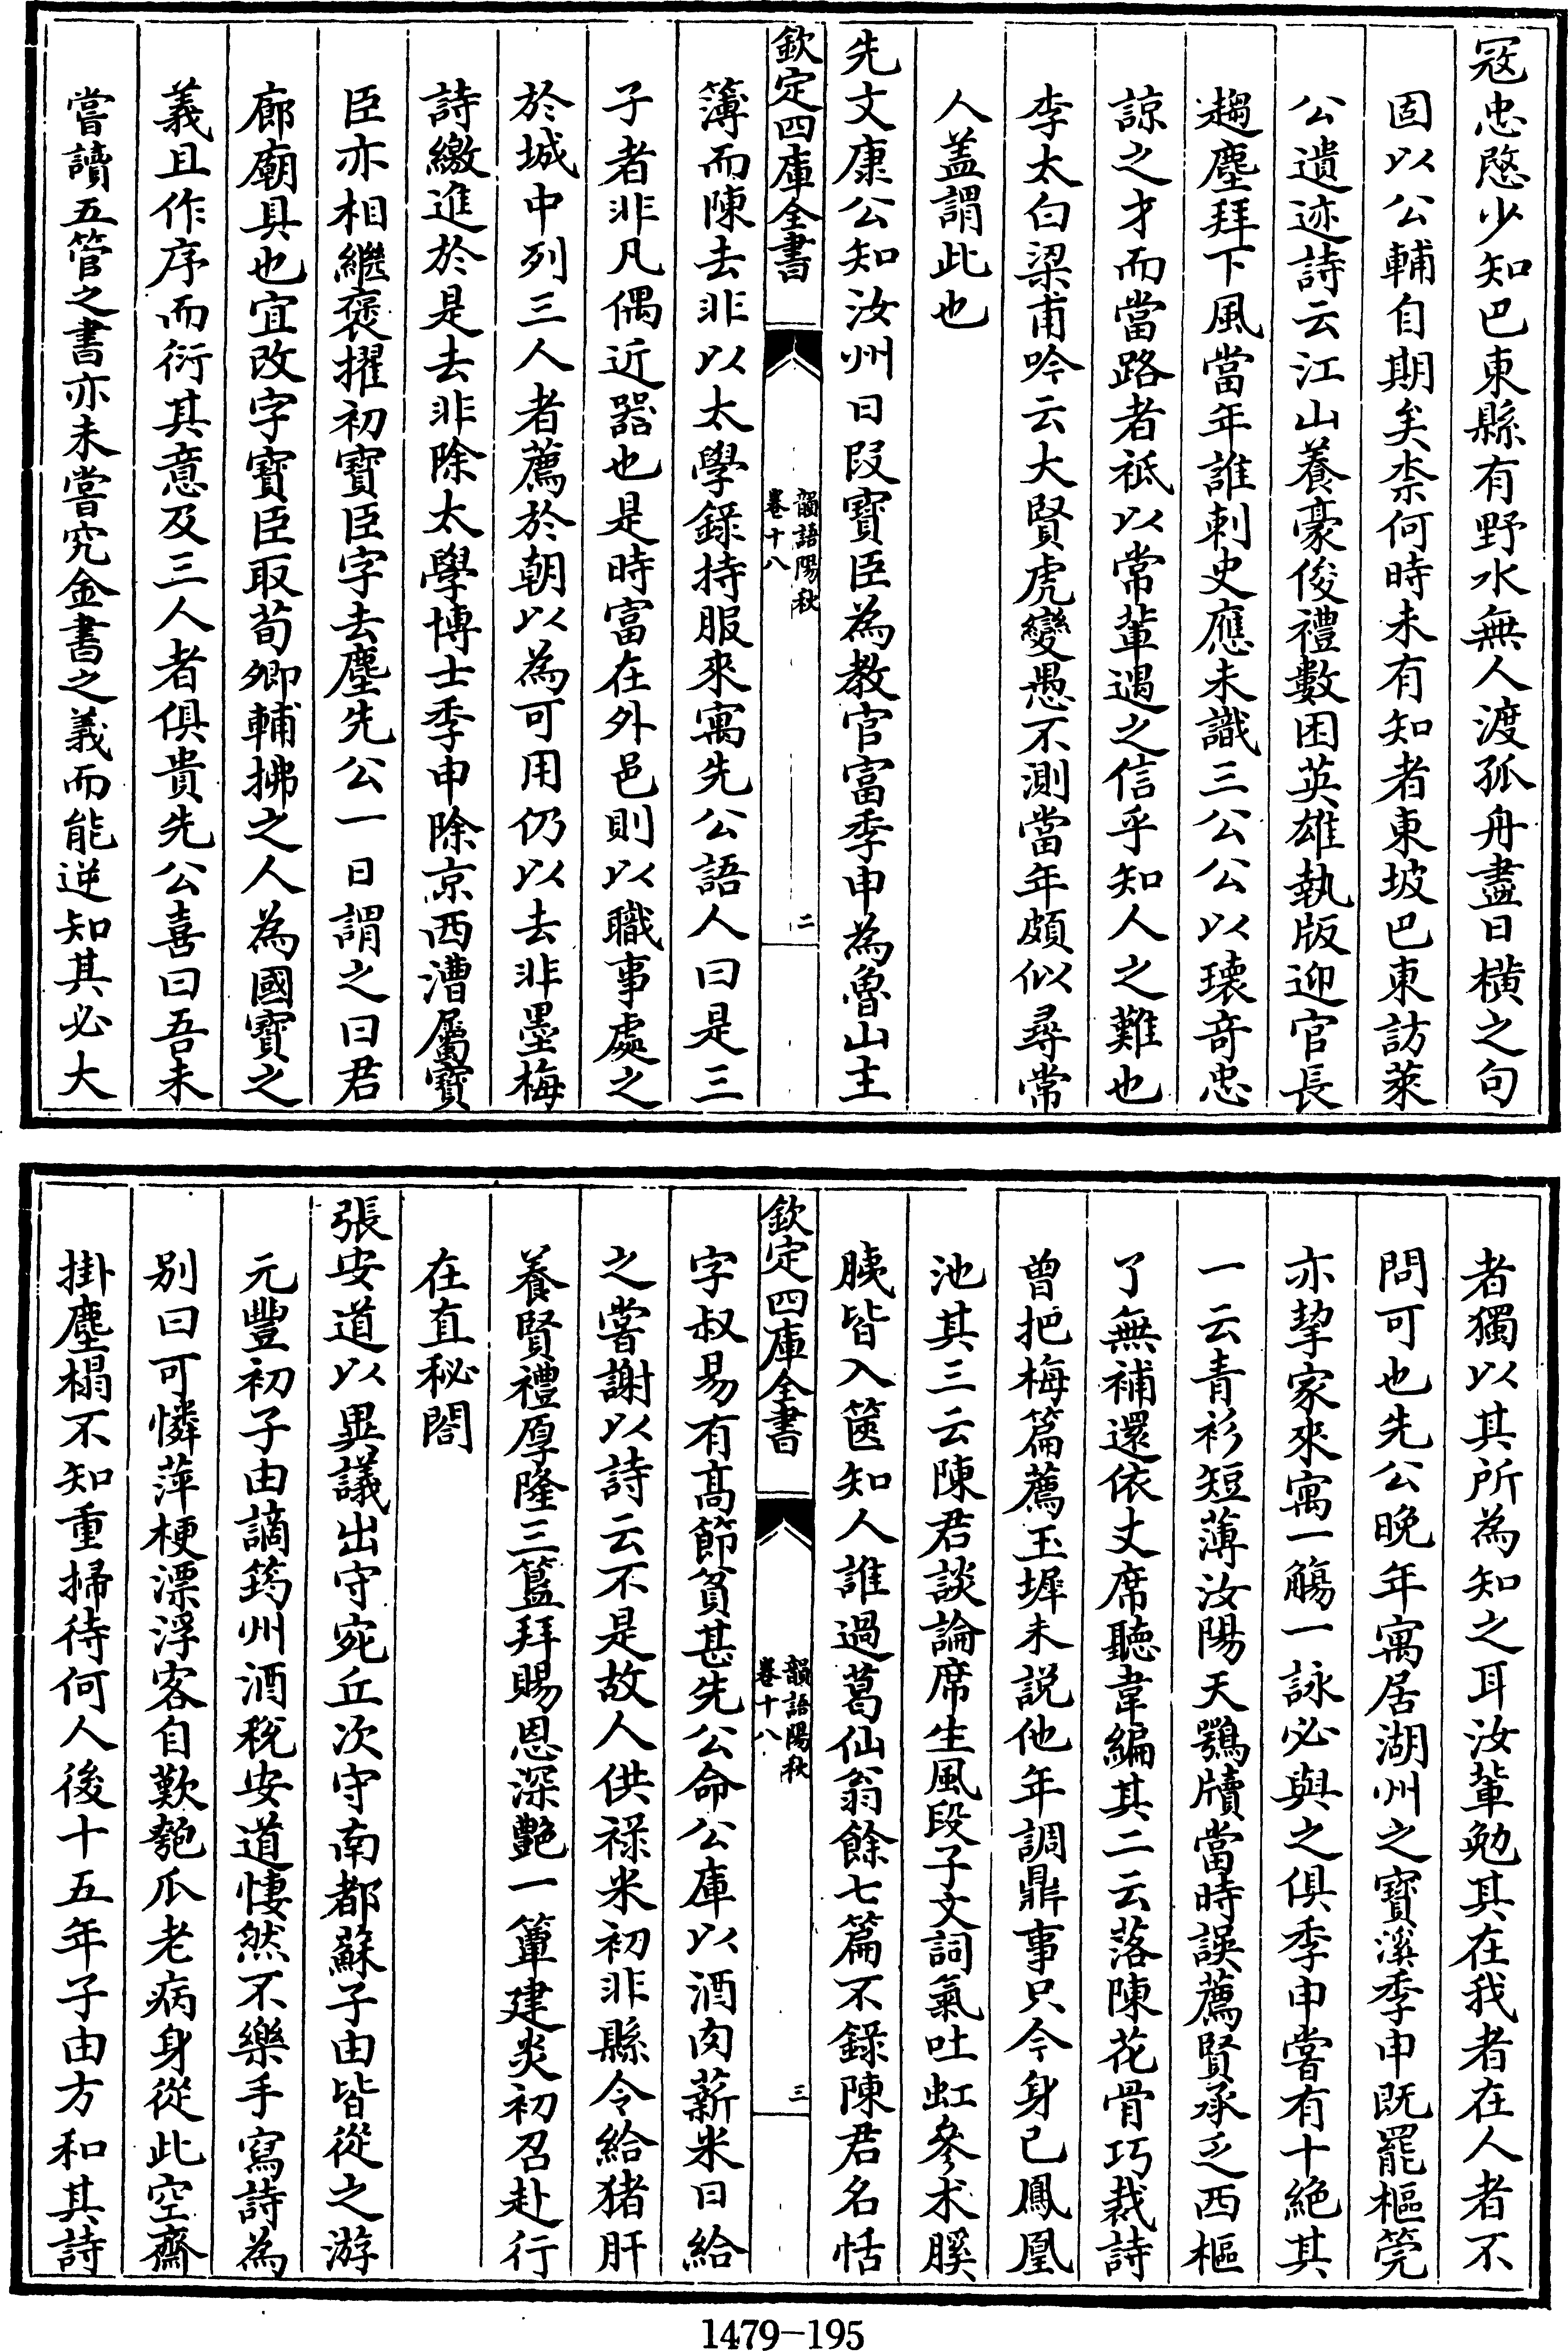 冦忠愍少知巴東縣有野水無人渡孤舟盡日横之句
固以公輔自期矣柰何時未有知者東坡巴東訪萊
公遺迹詩云江山養豪俊禮數困英雄執版迎官長
趨塵拜下風當年誰刺史應未識三公公以瓌奇忠
諒之才而當路者祗以常軰遇之信乎知人之難也
李太白梁甫吟云大賢虎變愚不測當年頗似尋常
人盖謂此也
先文康公知汝州日段寳臣為教官富季申為魯山主
欽定四庫全書
韻語陽秋
卷十八
二
簿而陳去非以太學錄持服來寓先公語人曰是三
子者非凡偶近器也是時富在外邑則以職事處之
於城中列三人者薦於朝以為可用仍以去非墨梅
詩繳進於是去非除太學博士季申除京西漕屬寳
臣亦相繼褒擢初寳臣字去塵先公一日謂之曰君
廊廟具也宜改字寳臣取荀卿輔拂之人為國寳之
義且作序而衍其意及三人者俱貴先公喜曰吾未
嘗讀五管之書亦未嘗究金書之義而能逆知其必大
者獨以其所為知之耳汝軰勉其在我者在人者不
問可也先公晚年寓居湖州之寳溪季申既罷樞筦
亦挈家來寓一觴一詠必與之俱季申嘗有十絶其
一云青衫短薄汝陽天鶚牘當時誤薦賢承乏西樞
了無補還依丈席聽韋編其二云落陳花骨巧裁詩
曽把梅篇薦玉墀未説他年調鼎事只今身已鳳凰
池其三云陳君談論席生風段子文詞氣吐虹參朮膎
胰皆入篋知人誰過葛仙翁餘七篇不錄陳君名恬
欽定四庫全書
韻語陽秋
卷十八
三
字叔易有髙節貧甚先公命公庫以酒肉薪米日給
之嘗謝以詩云不是故人供祿米初非縣令給猪肝
養賢禮厚隆三簋拜賜恩深艶一簞建炎初召赴行
在直秘閣
張安道以異議出守宛丘次守南都蘇子由皆從之游
元豐初子由謫筠州酒稅安道悽然不樂手寫詩為
别曰可憐萍梗漂浮客自歎匏瓜老病身從此空齋
掛塵榻不知重掃待何人後十五年子由方和其詩
1479-195